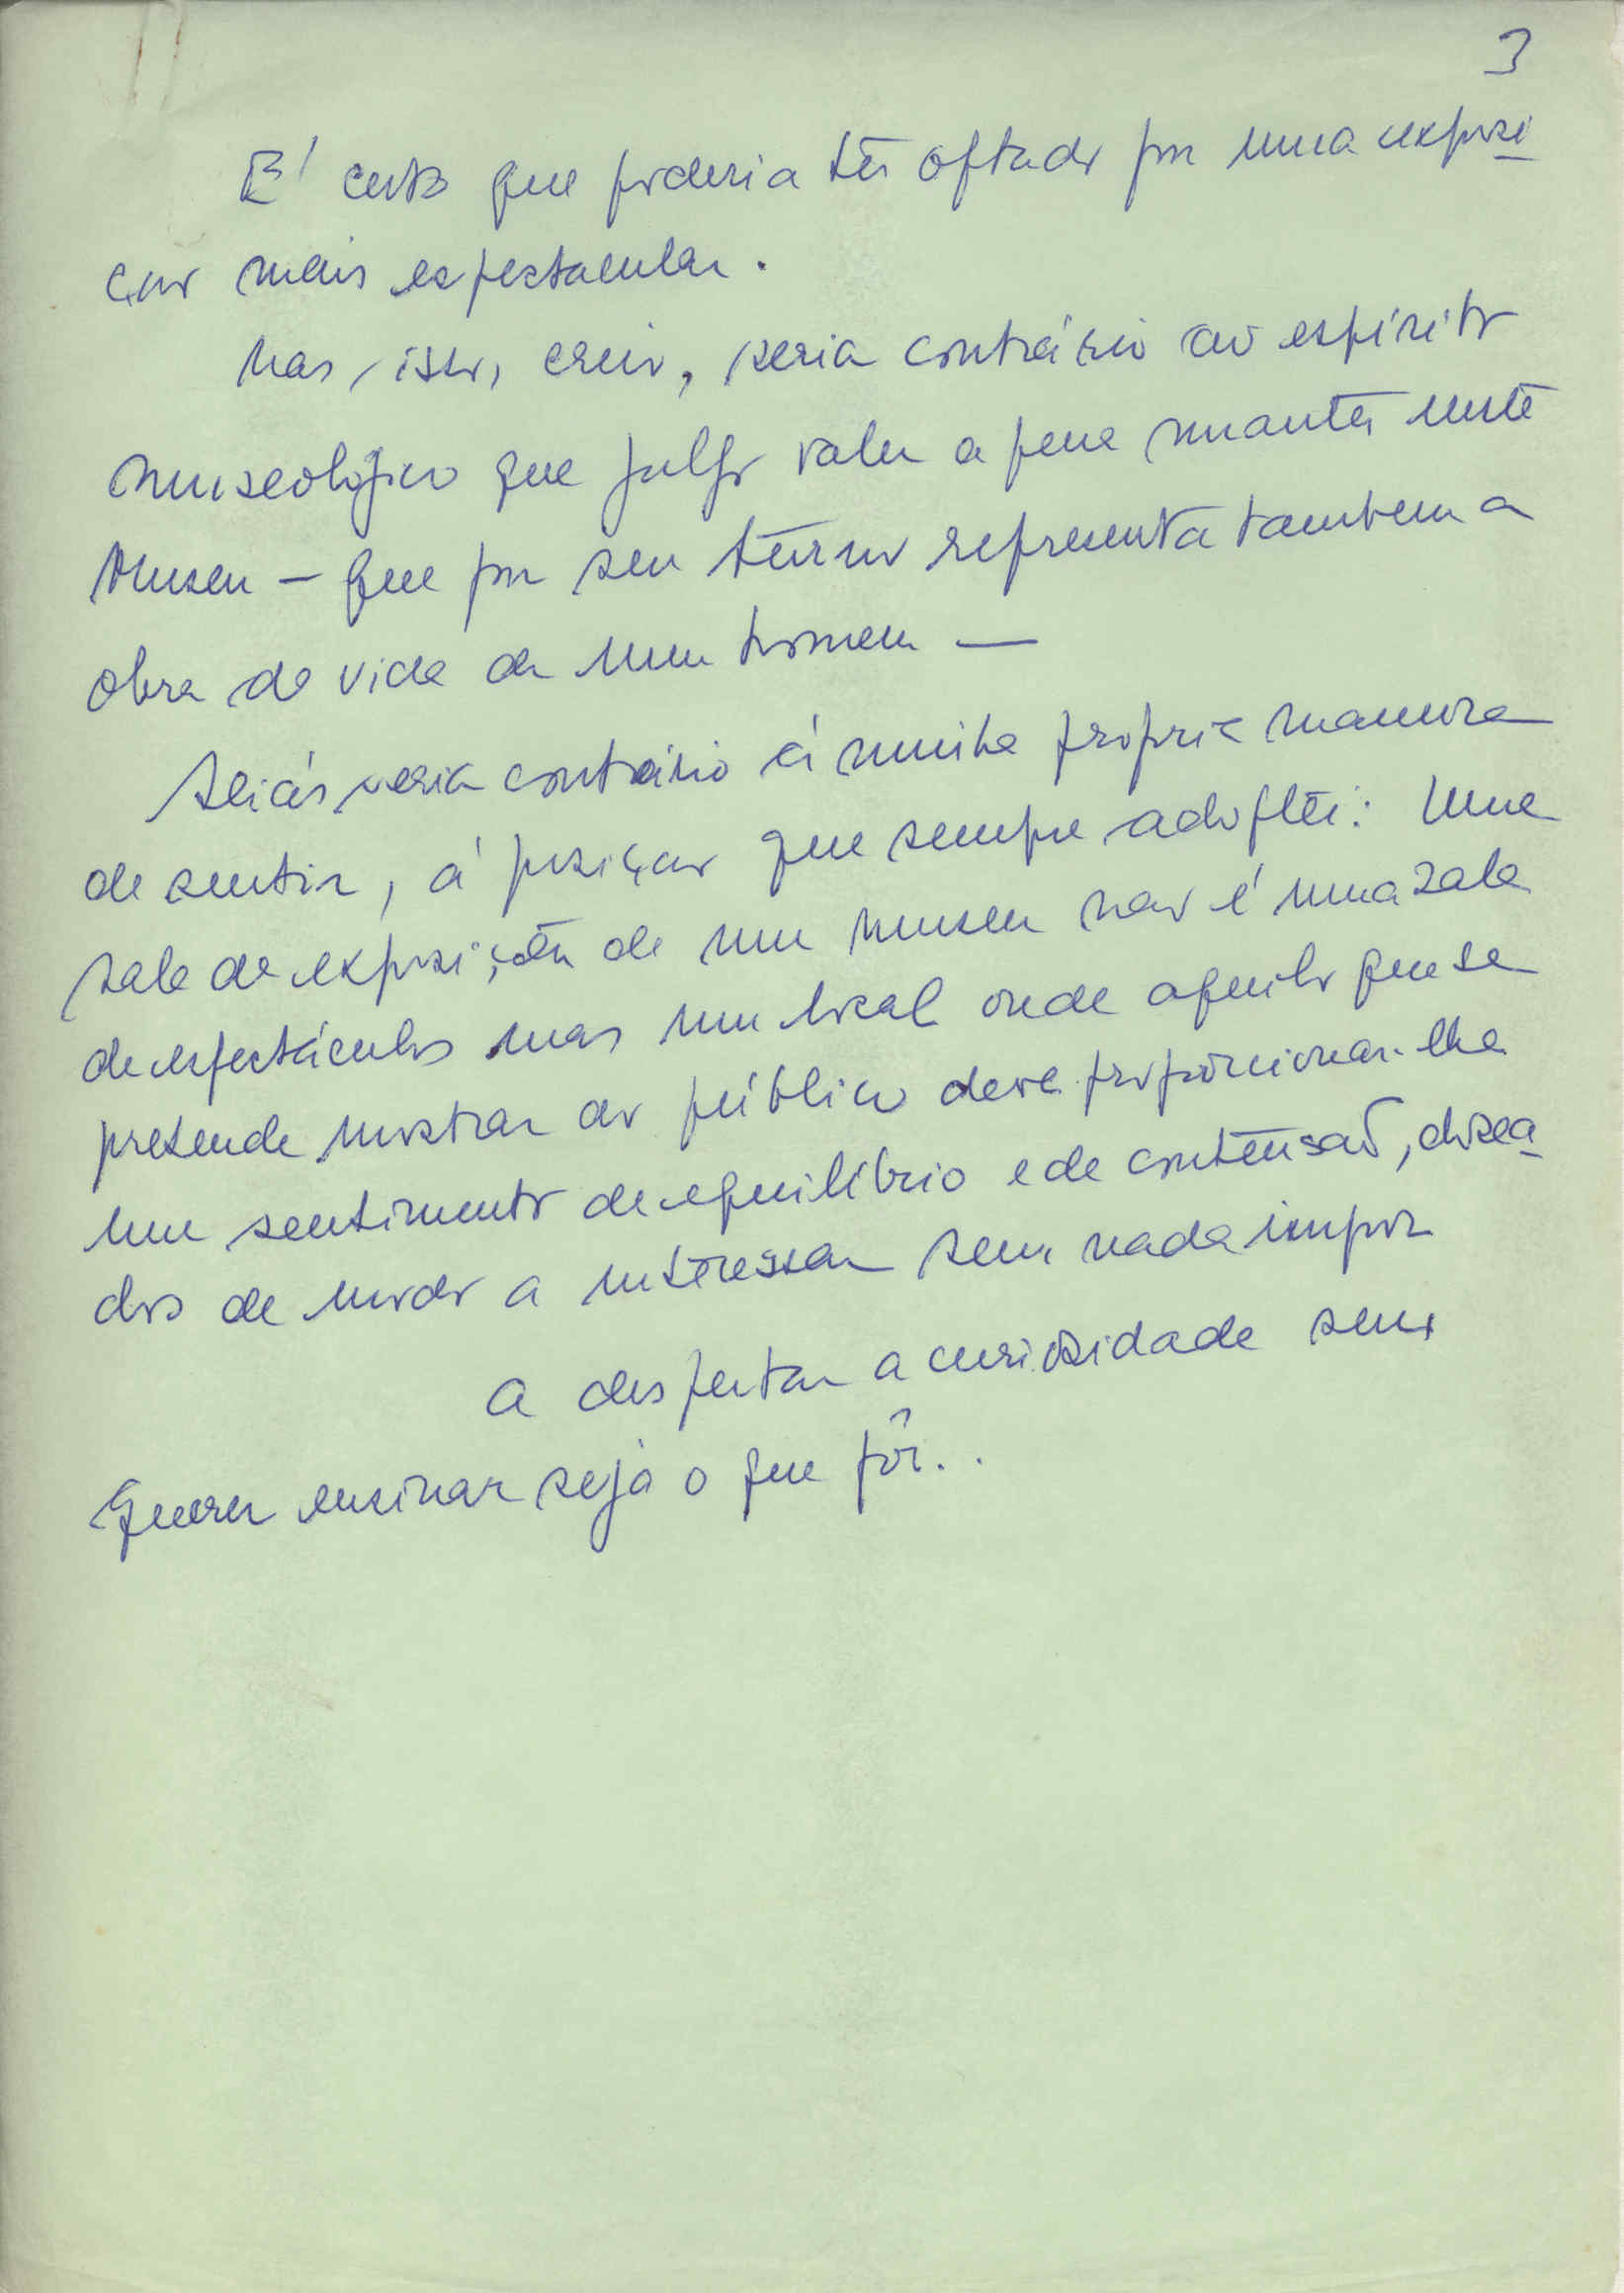 3
E' certo que poderia ter optado por uma exposi
ção mais espectacular.
Mas, isso, creio, seria contrário ao espírito
museológico que julgo valer a pena manter neste
Museu — que por seu turno representa tambem a
obra de vida de um homem —
Aliás seria contrário á minha propria maneira
de sentir, á posição que sempre adoptei: Uma
sala de exposições de um museu não é uma sala
de espectáculos mas um local onde aquilo que se
pretende mostrar ao público deve proporcionar-lhe
um sentimento de equilíbrio e de contensão, dosea
dos de modo a interessar sem nada impor
a despertar a curiosidade sem
querer ensinar seja o que fôr...